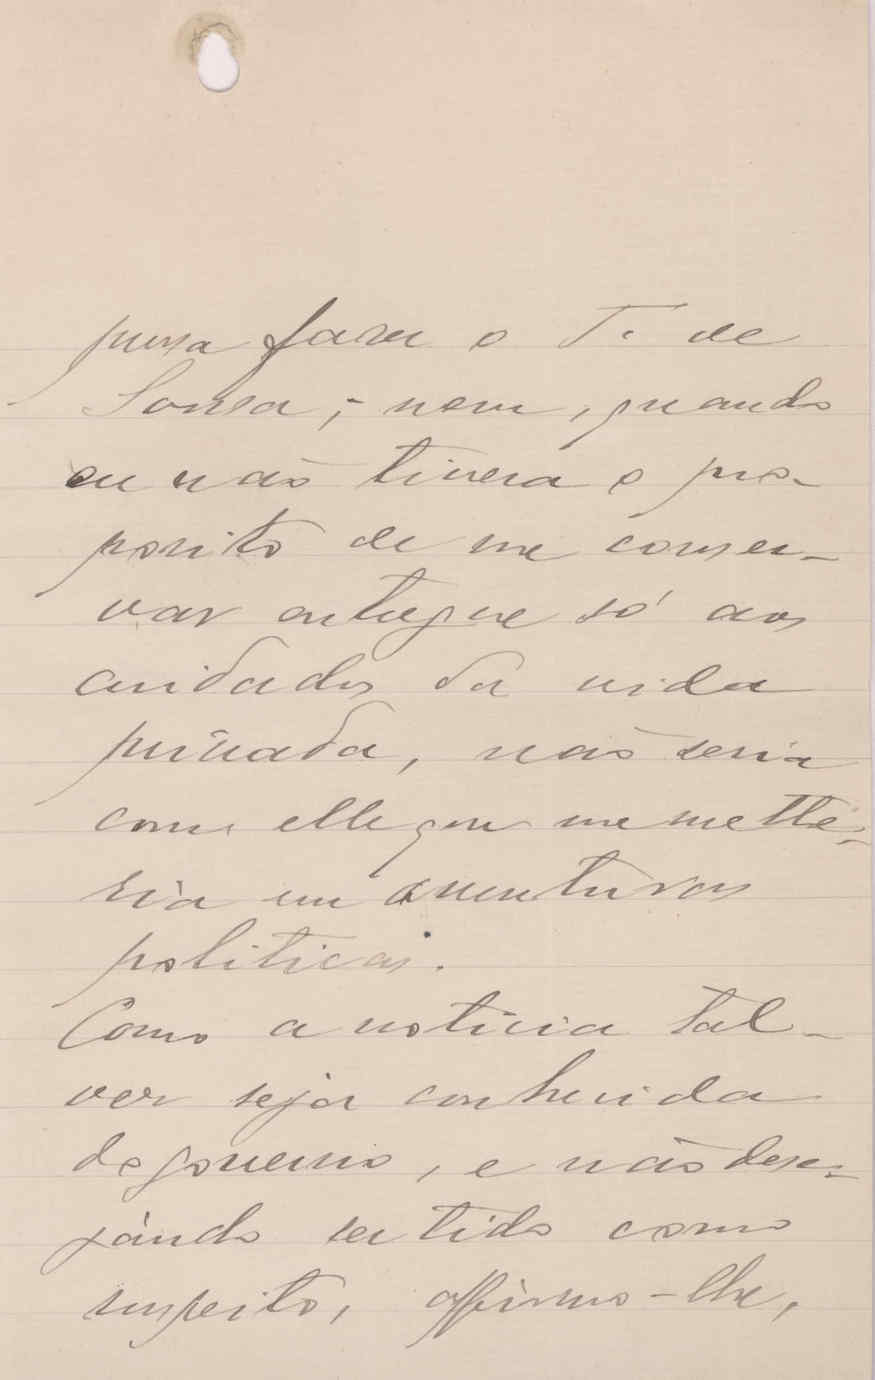 possa fazer o T. de
Souza; – nem, quando
eu não tivera o pro-
posito de me conser-
var entregue só aos
cuidados da vida
privada, não seria
com elle que me mette-
ria em aventuras
politicas.
Como a noticia tal-
vez seja conhecida
do governo, e não dese-
jando ser tido como
suspeito, affirmo-lhe,